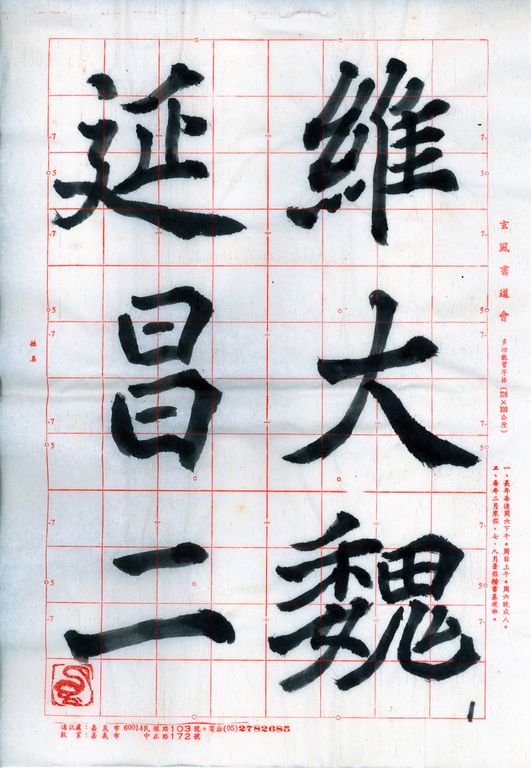 維大魏
延昌二
玄風書道會
多功能習字格(220×330公厘)
一、長年每逢周六下午。周日上午。周六晚成人。
五、每年二月寒假、七、八月暑假楷書基礎班。
姓名
通訊處：嘉義市60014民權路103號。電話(05)2782685
教室：嘉義市 中正路172號
1